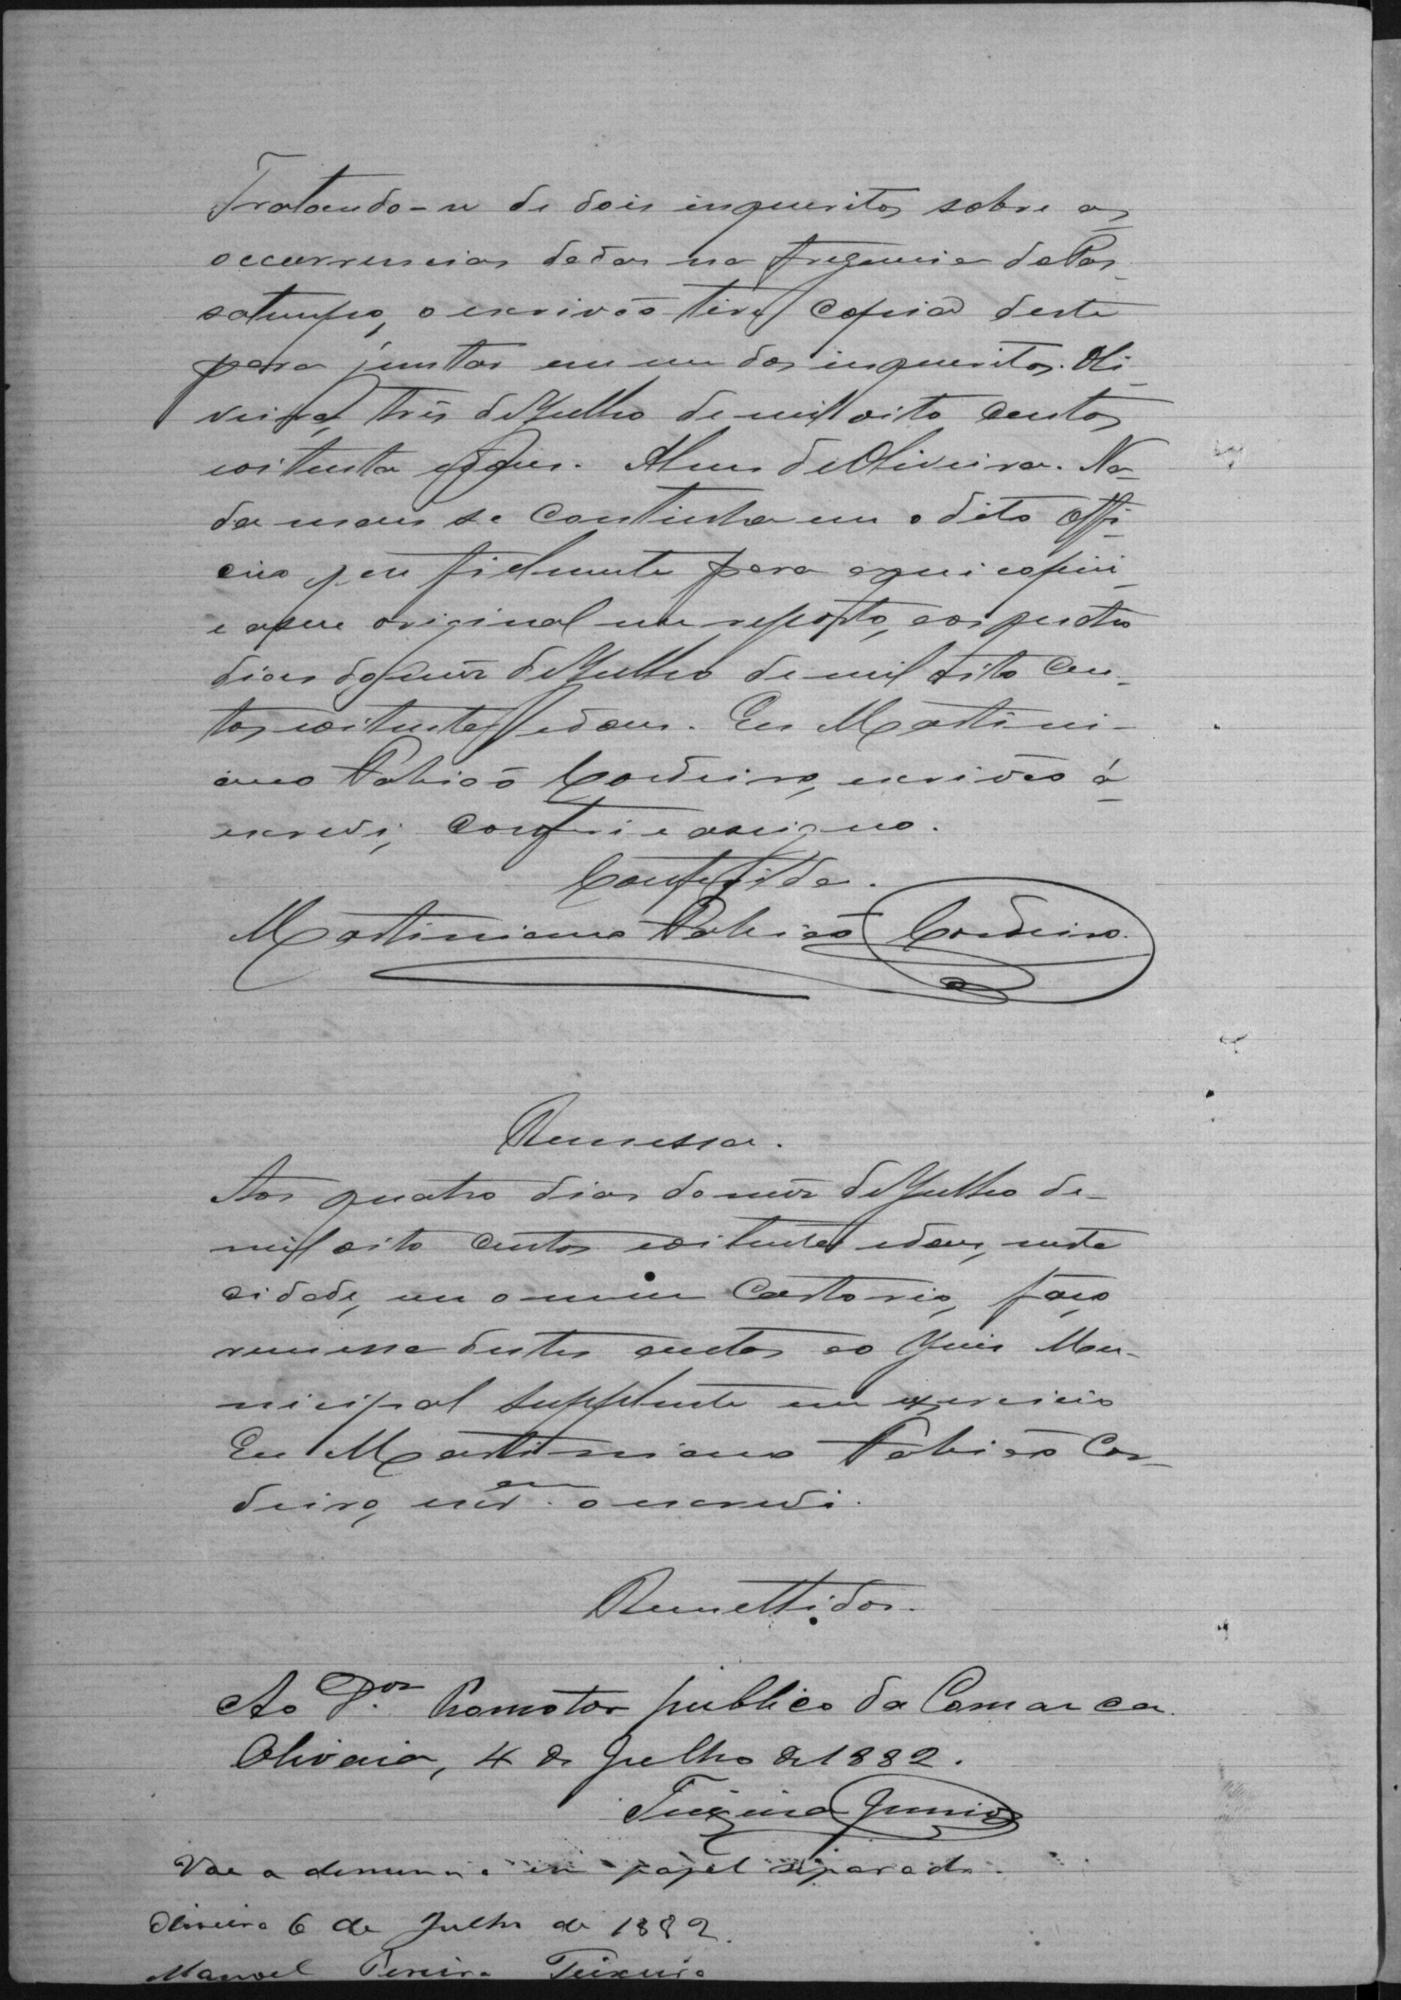 Tratando-se de dois inqueritos sobre as
occurrencias dadas na freguesia de Pas-
satempo, o escrivão tire copia deste
para juntar em um dos inqueritos. Oli-
veira, três de Julho de mil oito centos
e oitenta e dous. Alves de Oliveira. Na-
da mais se continha em o dito offi-
cio que fielmente para aqui copiei
e a seu original me reporto, aos quatro
dias do mêz de Julho de mil oito cen-
tos e oitenta e dous. Eu Martini-
ano Fabião Cordeiro, escrivão á
escrevi, conferi e assigno.
Conferida.
Martiniano Fabião Cordeiro.
Remessa.
Aos quatro dias do mêz de Julho de
mil oito centos e oitenta e dous, nesta
cidade, em o meu Cartorio, faço
remessa destes autos ao Juis Mu-
nicipal Supplente em exercicio
Eu Martiniano Fabião Cor-
deiro, escr.am o escrevi.
Remettidos.
Ao Dor. Promotor publico da Comarca.
Oliveira, 4 de Julho de 1882.
Teixeira Junior
Vae a denuncia em papel separado.
Oliveira 6 de Julho de 1882.
Manoel Pereira Teixeira